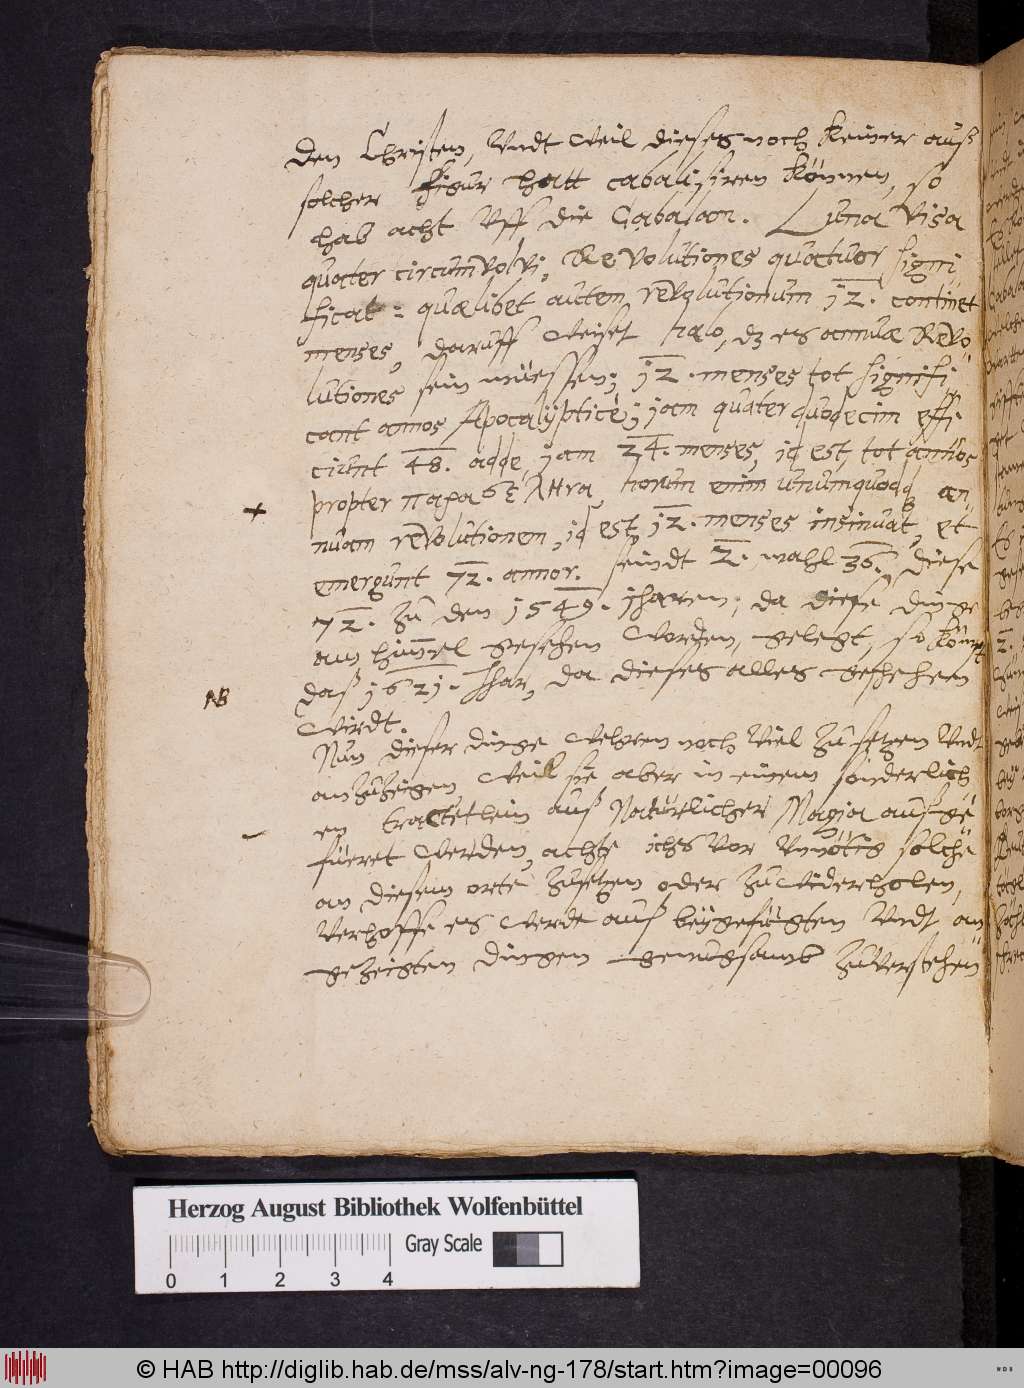 den Christen, Undt weil dieses noch keiner auß
solcher figur hatt cabalisiren können, so
hab acht Uff die Cabalam. Luna visa
quater circumvolvi, Revolutiones quatuor signi
ficat: quælibet autem revolutionum 12. continet
menses, daruff weiset halo, dz es annuæ Revo-
lutiones sein müessen; 12. menses tot signifi-
cant annos Apocalypticè; jam quater duodecim effi-
ciunt 48. adde, jam 24. menses, id est, tot annos
propter horum enim unumquodq an-
nuam revolutionem, id est 12. menses insinuat, et
emergunt 72. annor. seindt 2. mahl 36. diese
72. zu den 1549. jharen, da diese dinge
am himmel gesehen worden, gelegt, so kömpt
NB daß 1621. Jhar, da dieses alles geschehen
wirdt.
Nun dieser dinge wehren noch viel zu setzen Undt
anzuzeigen, weil sie aber in einem sonderlich
en tractetlein auß Natürlicher Magia außge
füeret werden, achte ichs vor Unnötig solche
an diesem orte zusetzen oder zu widerholen,
Verhoffe es werde auß beygefügten Undt an
gezeigten dingen genugsamb zuverstehen
Herzog August Bibliothek Wolfenbüttel
Gray Scale
0 1 2 3 4
© HAB http://diglib.hab.de/mss/alv-ng-178/start.htm?image=00096